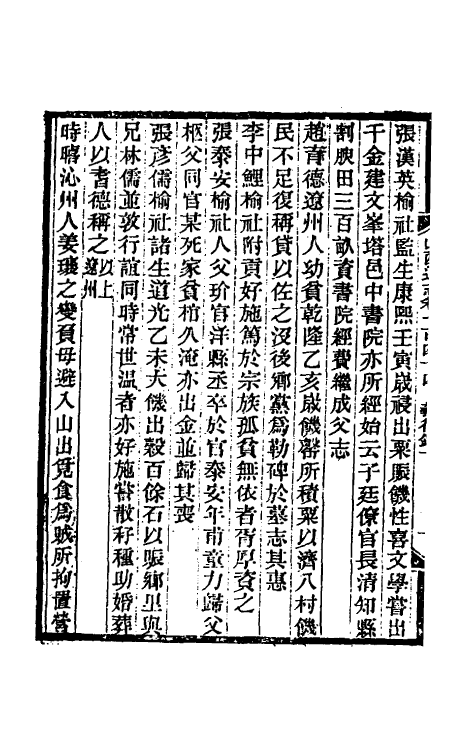 張漢英榆社監生康熙壬寅歲祲出粟賑饑性喜文學嘗出
千金建文峯塔邑中書院亦所經始云子廷僚官長清知縣
割腴田三百畝資書院經費繼成父志
趙育德遼州人幼貧乾隆乙亥歲饑罄所積粟以濟八村饑
民不足復稱貸以佐之沒後鄉黨爲勒碑於墓志其惠
李中鯉榆社附貢好施篤於宗族孤貧無依者胥厚資之
張泰安榆社人父玠官洋縣丞卒於官泰安年甫童力歸父
柩父同官某死家貧棺久淹亦出金並歸其喪
張彥儒榆社諸生道光乙未大饑出穀百餘石以賑鄉里與
兄林儒並敦行誼同時常世温者亦好施嘗散籽種助婚葬
人以耆德稱之以上遼州
時晤沁州人姜瓖之變負母避入山出覓食爲賊所拘置營